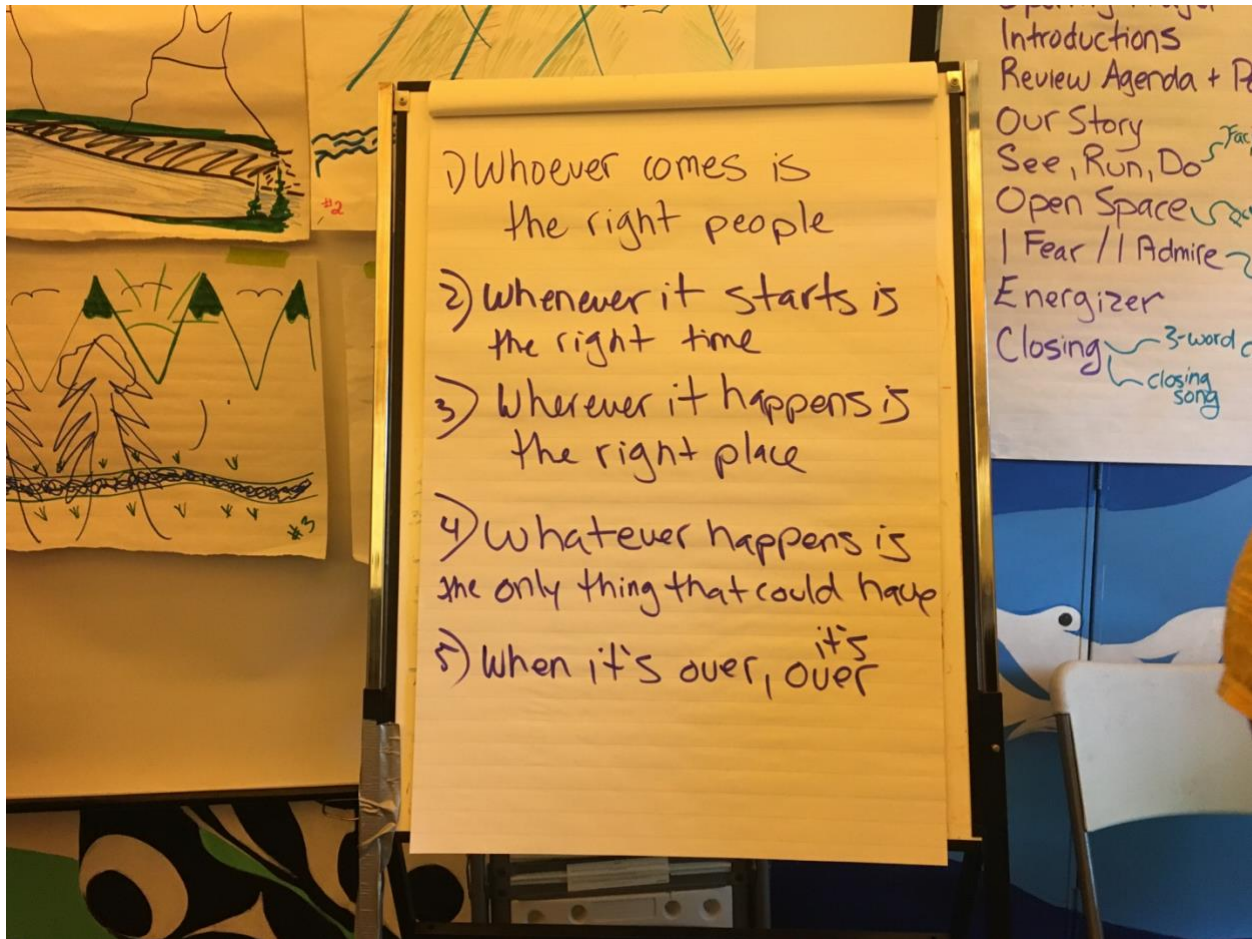 1) Whoever comes is
the right people
2) Whenever it starts is
the right time
3) Wherever it happens is
the right place
4) Whatever happens is
the only thing that could have
5) When it's over, it's over
#2
#3
Introductions
Review Agenda +
Our Story
See, Run, Do
Open Space
I Fear / I Admire
Energizer
Closing
3-word
closing
song